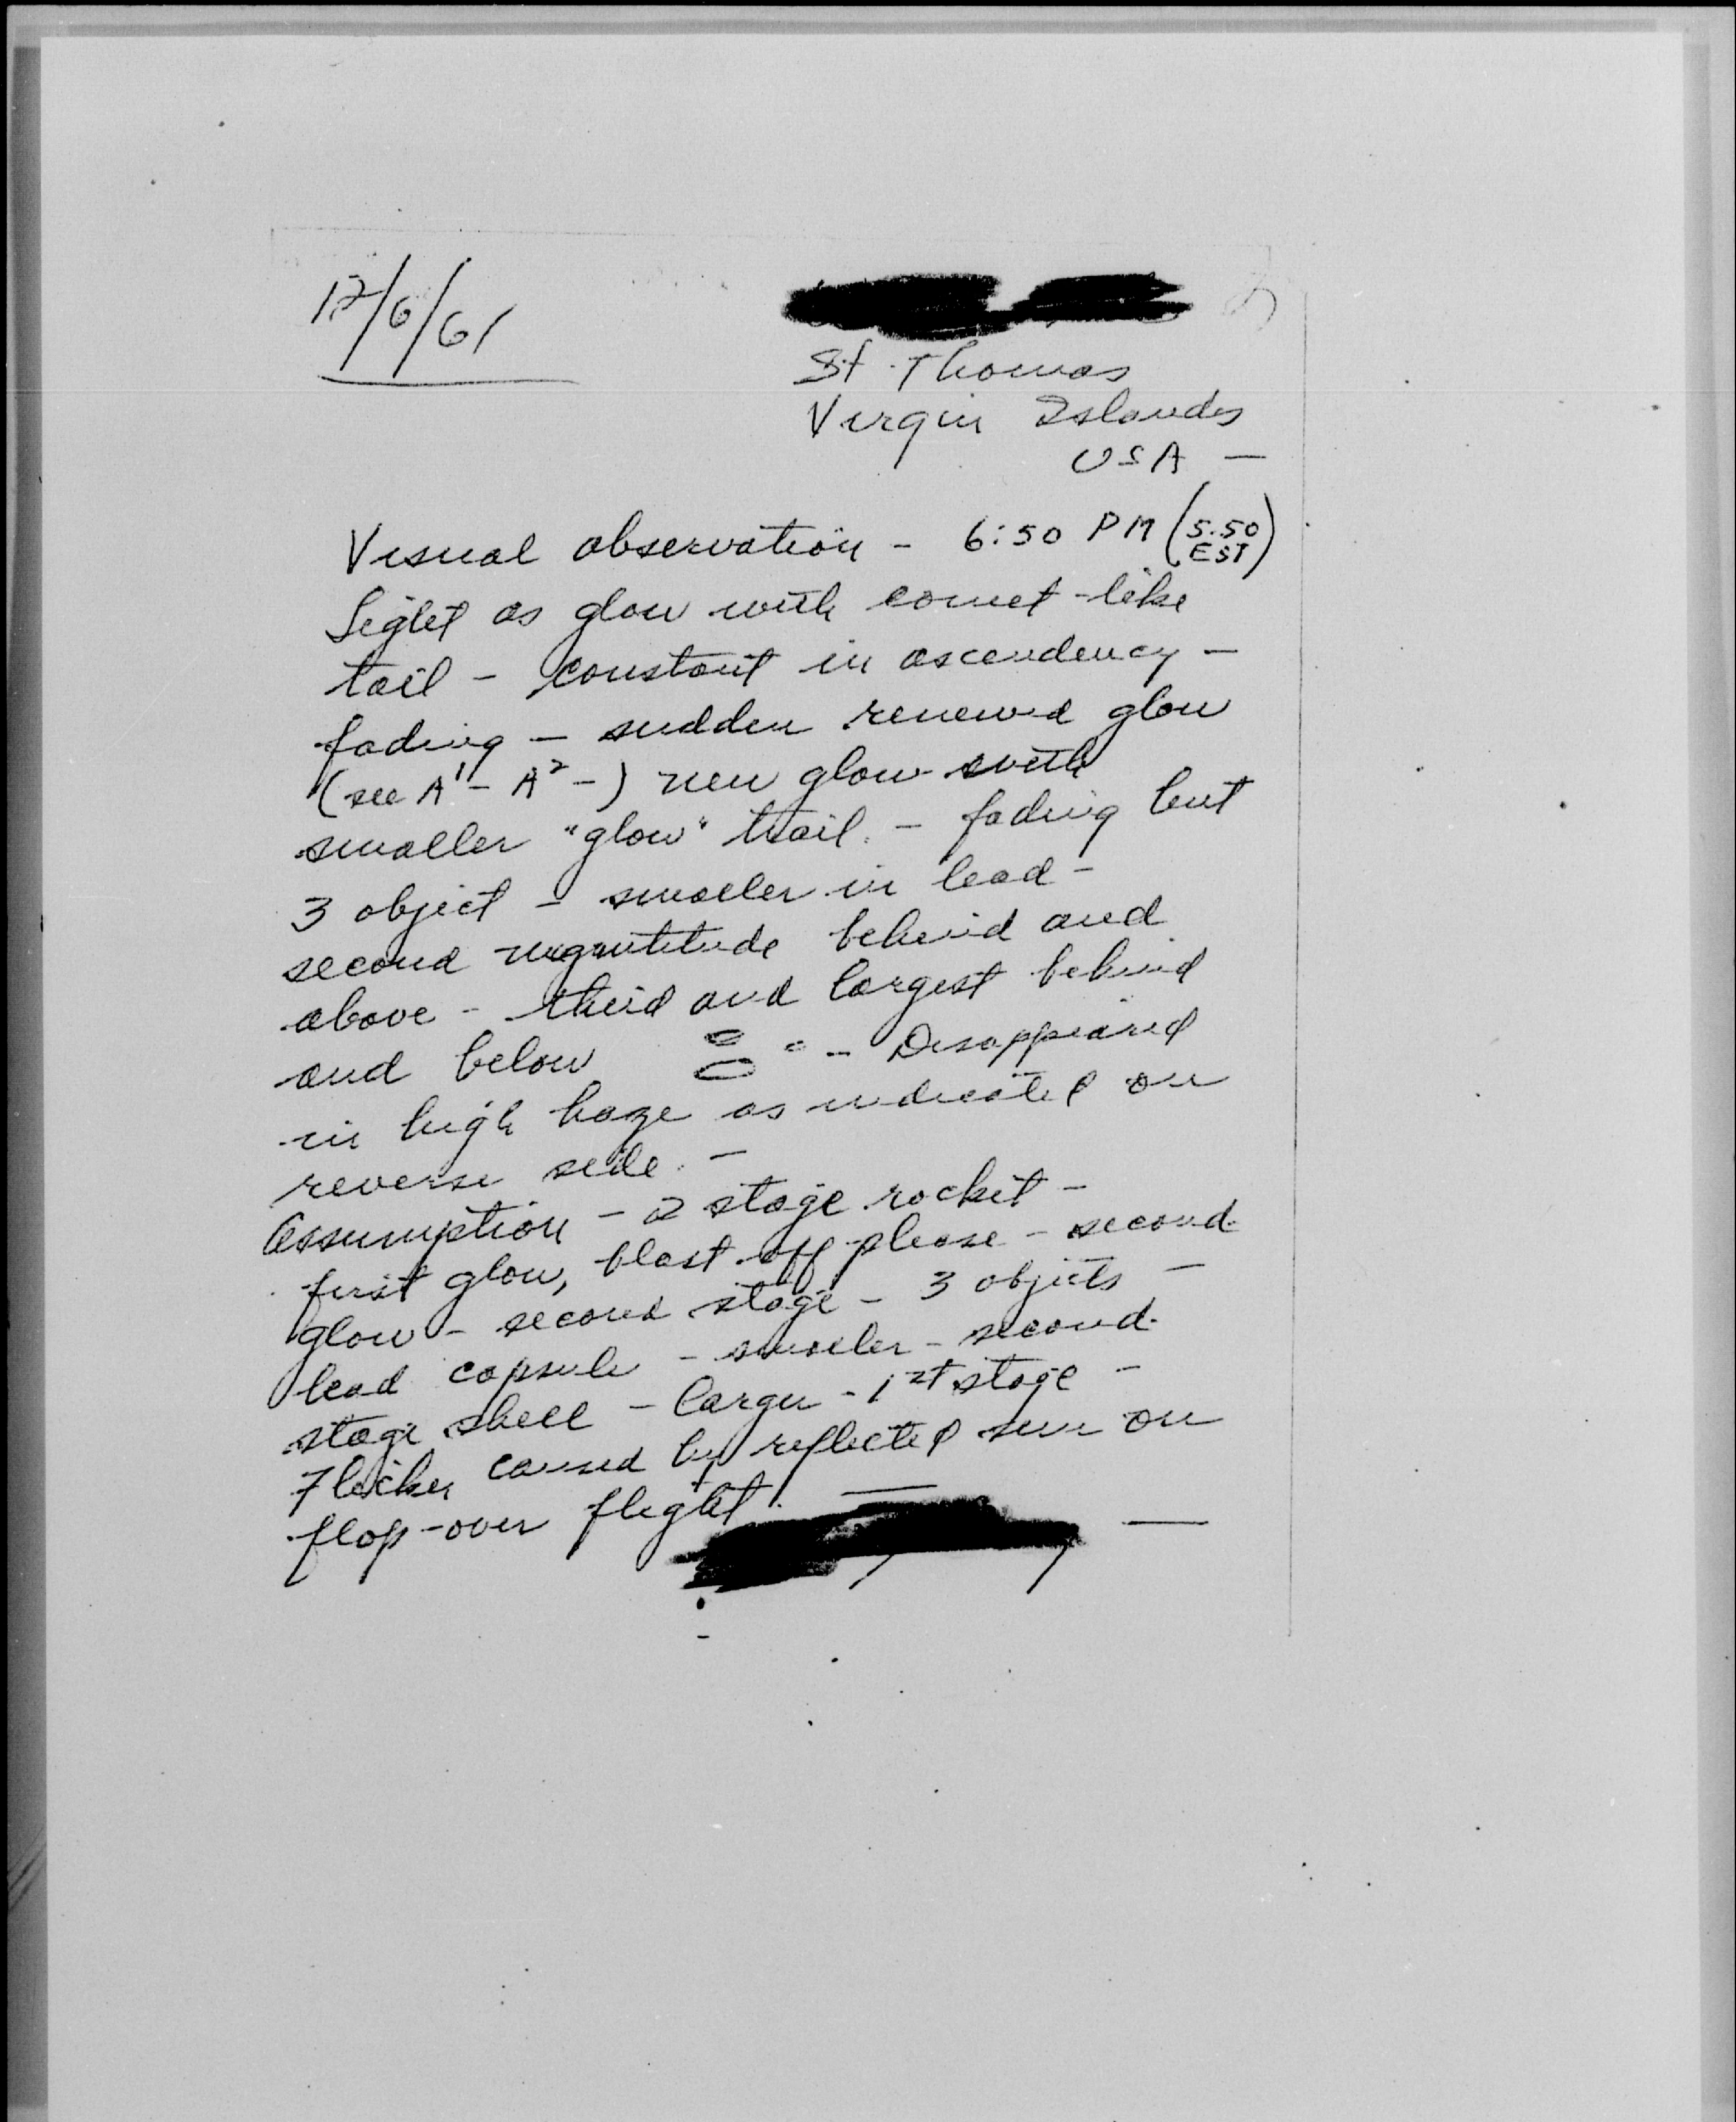 12/6/61
St. Thomas
Virgin Islands
USA —
Visual observation - 6:50 PM (5:50 EST)
Light as glow with comet-like
tail - constant in ascendency -
fading - sudden renewed glow
(see A¹ - A² -) new glow with
smaller "glow" trail. - fading but
3 object - smaller in lead -
second magnitude behind and
above - third and largest behind
and below - Disappeared
in high haze as indicated on
reverse side. -
Assumption - 2 stage rocket -
first glow, blast off phase - second
glow - second stage - 3 objects -
lead capsule - smaller - second
stage shell - larger - 1st stage -
Flicker caused by reflected sun on
flop-over flight. —